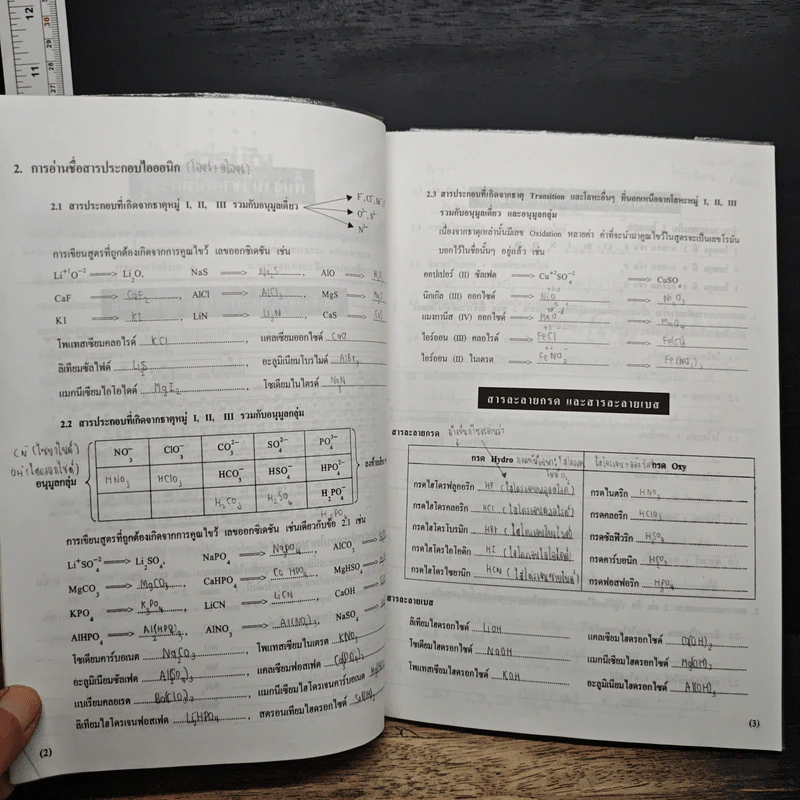 12
11
30
29
28
27
2. การอ่านชื่อสารประกอบไอออนิก (โลหะ+อโลหะ)
2.1 สารประกอบที่เกิดจากธาตุหมู่ I, II, III รวมกับอนุมูลเดี่ยว
N³⁻
การเขียนสูตรที่ถูกต้องเกิดจากการคูณไขว้ เลขออกซิเดชัน เช่น
Li⁺¹O⁻² ⟹ Li₂O, NaS ⟹ Na₂S AlO ⟹
CaF ⟹ CaF₂, AlCl ⟹ AlCl₃, MgS ⟹ MgS
KI ⟹ KI, LiN ⟹ Li₃N CaS ⟹
โพแทสเซียมคลอไรด์ KCl, แคลเซียมออกไซด์ CaO
ลิเทียมซัลไฟด์ อะลูมิเนียมโบรไมด์ AlBr₃
แมกนีเซียมไอโอไดด์ MgI₂ โซเดียมไนไตรด์
2.2 สารประกอบที่เกิดจากธาตุหมู่ I, II, III รวมกับอนุมูลกลุ่ม
CN⁻ (ไซยาไนด์)
OH⁻ (ไฮดรอกไซด์)
อนุมูลกลุ่ม
NO₃⁻ ClO₃⁻ CO₃²⁻ SO₄²⁻ PO₄³⁻
HNO₃ HClO₃ HCO₃⁻ HSO₄⁻ HPO₄²⁻
H₂CO₃ H₂SO₄ H₂PO₄⁻
H₃PO₄
การเขียนสูตรที่ถูกต้องเกิดจากการคูณไขว้ เลขออกซิเดชัน เช่นเดียวกับข้อ 2.1 เช่น
Li⁺SO₄⁻² ⟹ Li₂SO₄, NaPO₄ ⟹ Na₃PO₄ AlCO₃ ⟹
MgCO₃ ⟹ MgCO₃, CaHPO₄ ⟹ CaHPO₄ MgHSO₄ ⟹
KPO₄ ⟹ K₃PO₄ LiCN ⟹ LiCN CaOH ⟹
AlHPO₄ ⟹ AlNO₃ ⟹ Al(NO₃)₃ NaSO₄ ⟹
โซเดียมคาร์บอเนต Na₂CO₃ โพแทสเซียมไนเตรต KNO₃
อะลูมิเนียมซัลเฟต แคลเซียมฟอสเฟต
แบเรียมคลอเรต Ba(ClO₃)₂ แมกนีเซียมไฮโดรเจนคาร์บอเนต
ลิเทียมไฮโดรเจนฟอสเฟต Li₂HPO₄ สตรอนเทียมไฮดรอกไซด์ Sr(OH)₂
(2)
2.3 สารประกอบที่เกิดจากธาตุ Transition และโลหะอื่นๆ ที่นอกเหนือจากโลหะหมู่ I, II, III
รวมกับอนุมูลเดี่ยว และอนุมูลกลุ่ม
เนื่องจากธาตุเหล่านั้นมีเลข Oxidation หลายค่า ค่าที่จะนำมาคูณไขว้ในสูตรจะเป็นเลขโรมัน
บอกไว้ในชื่อนั้นๆ อยู่แล้ว เช่น
คอปเปอร์ (II) ซัลเฟต ⟹ Cu⁺²SO₄⁻² ⟹ CuSO₄
นิกเกิล (III) ออกไซด์ ⟹ ⟹ Ni₂O₃
แมงกานีส (IV) ออกไซด์ ⟹ ⟹ MnO₂
ไอร์ออน (III) คลอไรด์ ⟹ FeCl ⟹
ไอร์ออน (II) ไนเตรต ⟹ FeNO₃ ⟹ Fe(NO₃)₂
สารละลายกรด และสารละลายเบส
สารละลายกรด
กรด Hydro กรด Oxy
กรดไฮโดรฟลูออริก HF กรดไนตริก HNO₃
กรดไฮโดรคลอริก HCl กรดคลอริก HClO₃
กรดไฮโดรโบรมิก HBr กรดซัลฟิวริก
กรดไฮโดรไอโอดิก HI กรดคาร์บอนิก
กรดไฮโดรไซยานิก HCN กรดฟอสฟอริก
สารละลายเบส
ลิเทียมไฮดรอกไซด์ LiOH แคลเซียมไฮดรอกไซด์ Ca(OH)₂
โซเดียมไฮดรอกไซด์ NaOH แมกนีเซียมไฮดรอกไซด์ Mg(OH)₂
โพแทสเซียมไฮดรอกไซด์ KOH อะลูมิเนียมไฮดรอกไซด์ Al(OH)₃
(3)